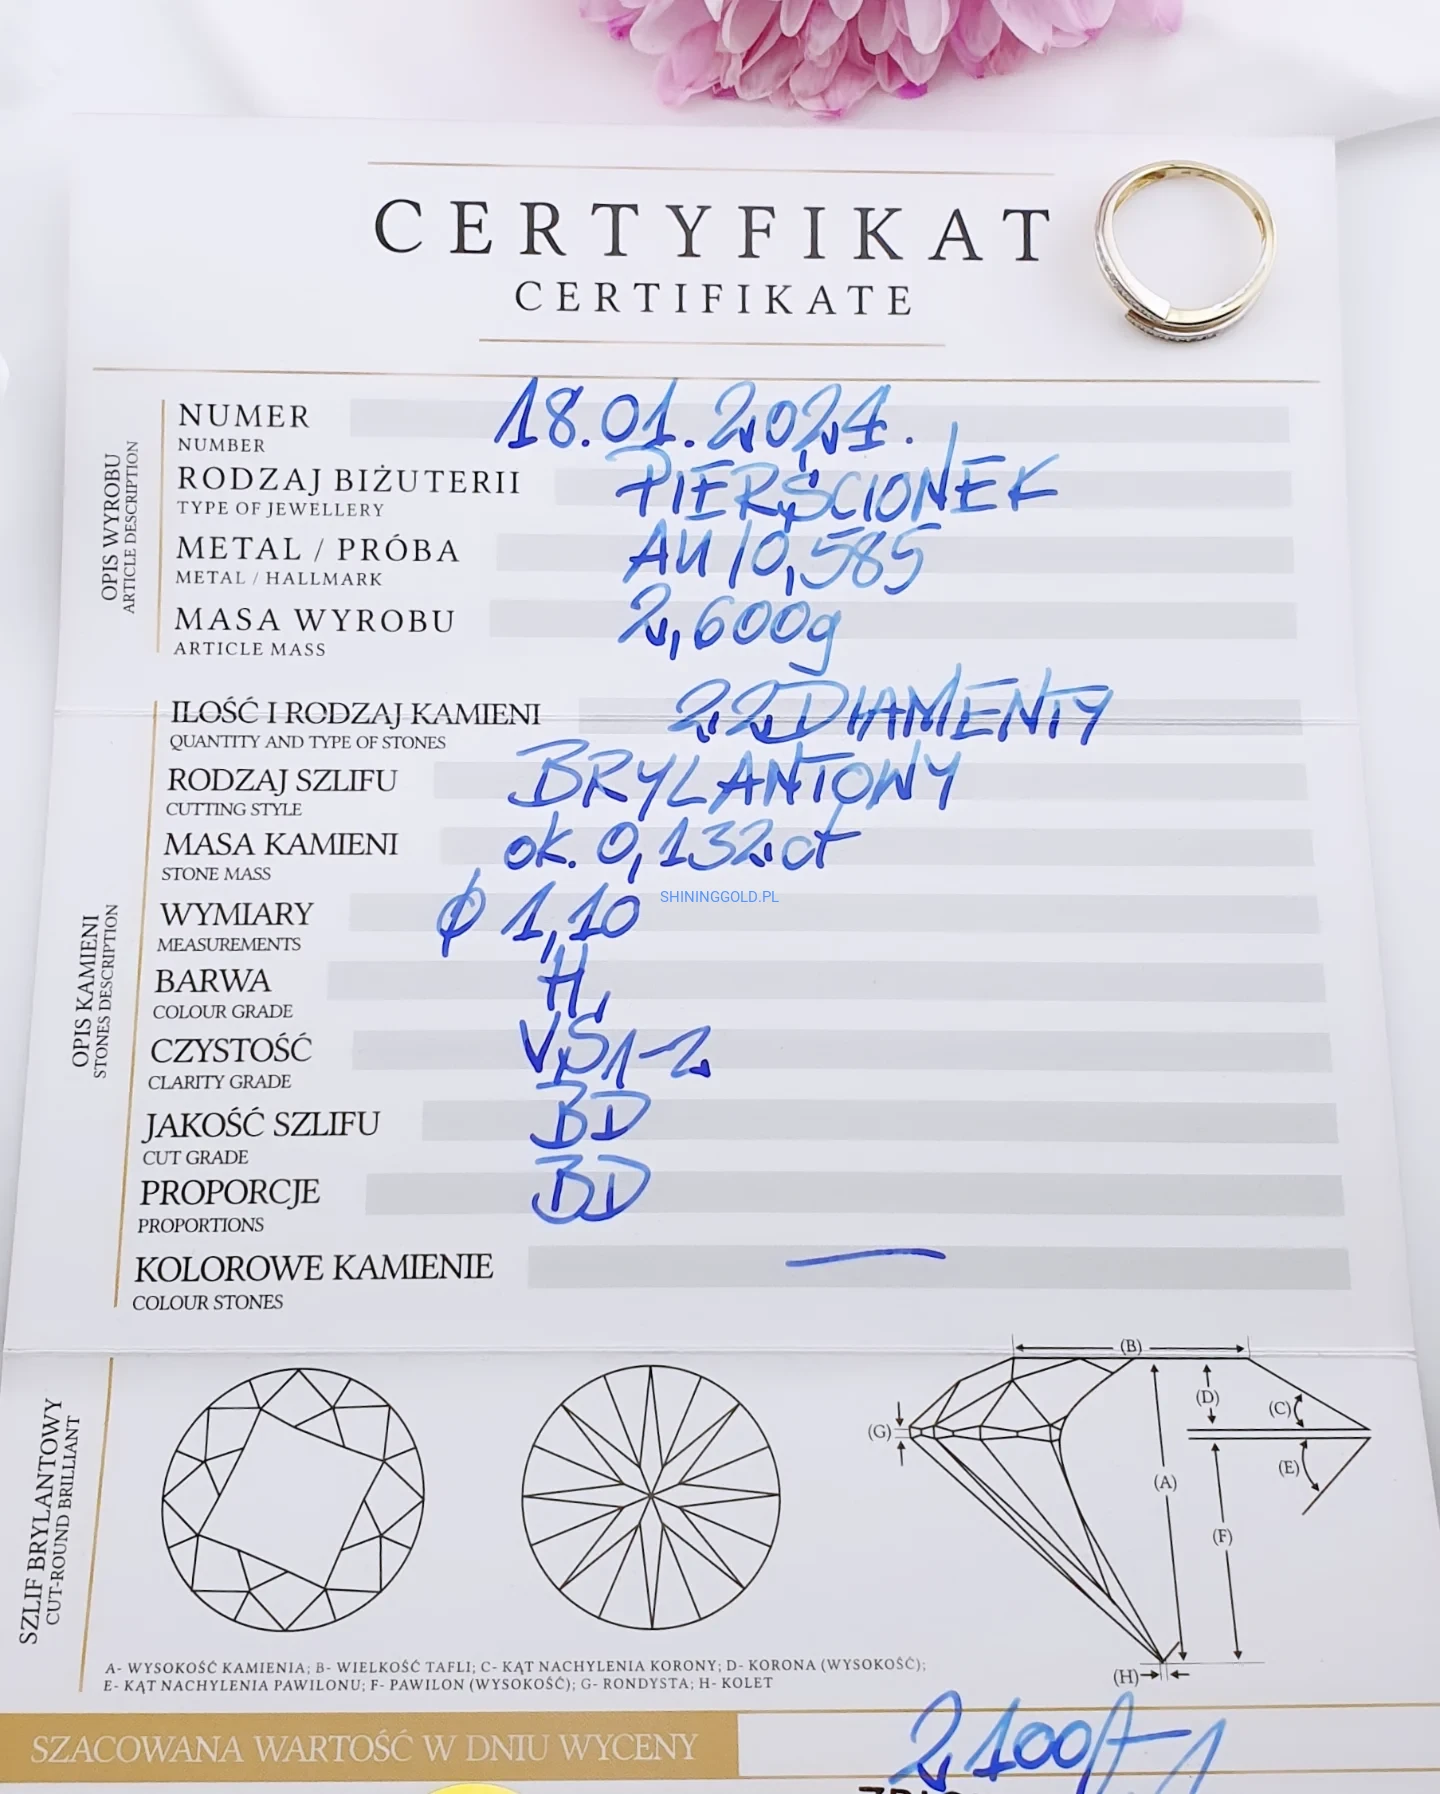 CERTYFIKAT
CERTIFIKATE
OPIS WYROBU
ARTICLE DESCRIPTION
NUMER 18.01.2024.
NUMBER
RODZAJ BIŻUTERII PIERŚCIONEK
TYPE OF JEWELLERY
METAL / PRÓBA AU/0,585
METAL / HALLMARK
MASA WYROBU 2,600g
ARTICLE MASS
OPIS KAMIENI
STONES DESCRIPTION
ILOŚĆ I RODZAJ KAMIENI 22 DIAMENTY
QUANTITY AND TYPE OF STONES
RODZAJ SZLIFU BRYLANTOWY
CUTTING STYLE
MASA KAMIENI ok. 0,132ct
STONE MASS
SHININGGOLD.PL
WYMIARY ϕ 1,10
MEASUREMENTS
BARWA H,
COLOUR GRADE
CZYSTOŚĆ VS1-2
CLARITY GRADE
JAKOŚĆ SZLIFU BD
CUT GRADE
PROPORCJE BD
PROPORTIONS
KOLOROWE KAMIENIE —
COLOUR STONES
SZLIF BRYLANTOWY
CUT-ROUND BRILLIANT
(B)
(D)
(C)
(G)
(E)
(A)
(F)
(H)
A- WYSOKOŚĆ KAMIENIA; B- WIELKOŚĆ TAFLI; C- KĄT NACHYLENIA KORONY; D- KORONA (WYSOKOŚĆ);
E- KĄT NACHYLENIA PAWILONU; F- PAWILON (WYSOKOŚĆ); G- RONDYSTA; H- KOLET
SZACOWANA WARTOŚĆ W DNIU WYCENY 2100